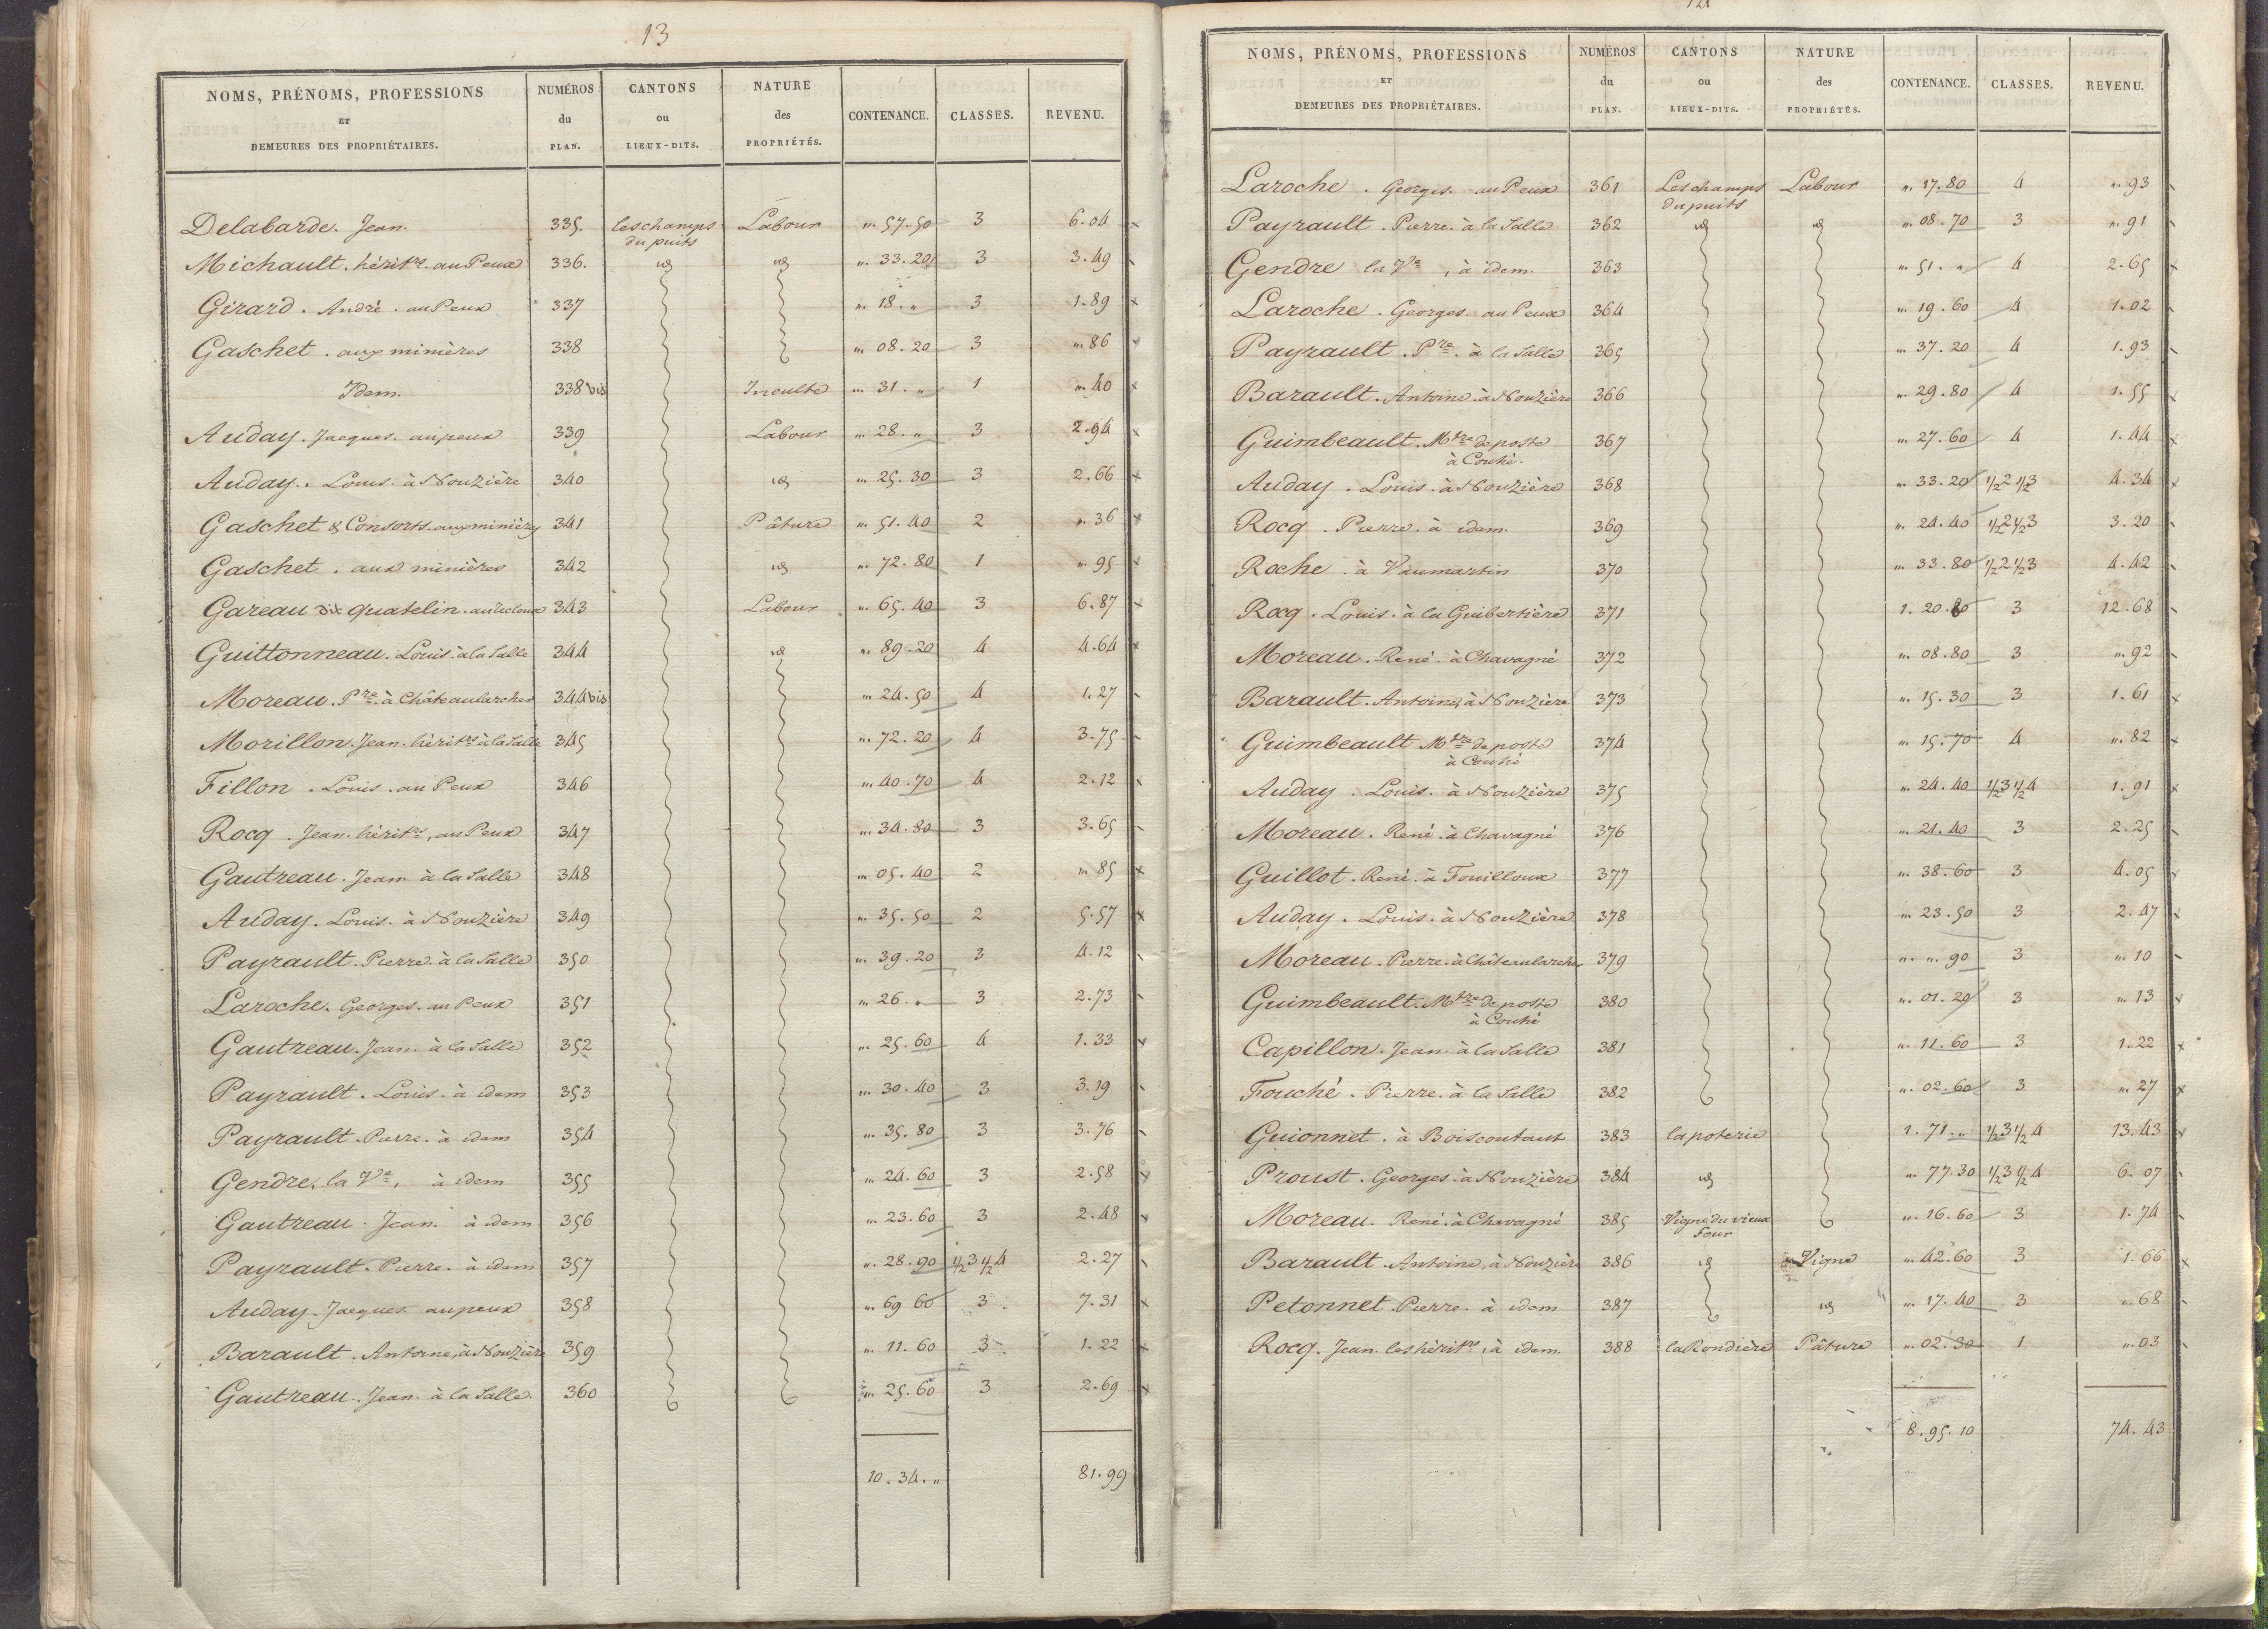 13
NOMS, PRÉNOMS, PROFESSIONS ET DEMEURES DES PROPRIÉTAIRES. NUMÉROS du PLAN. CANTONS ou LIEUX-DITS. NATURE des PROPRIÉTÉS. CONTENANCE. CLASSES. REVENU.
Delabarde. Jean. 335. les champs du puits Labour „. 57. 50 3 6. 04
Michault. hérit.rs au Peux 336. id id „. 33. 20 3 3. 49
Girard. André. au Peux 337 „. 18. „ 3 1. 89
Gaschet. aux minières 338 „. 08. 20 3 „. 86
Idem. 338 bis Inculte „. 31. „ 1 „. 40
Auday. Jacques. au peux 339 Labour „. 28. „ 3 2. 94
Auday. Louis. à Nouzière 340 id „. 25. 30 3 2. 66
Gaschet & Consorts. aux minières 341 Pâture „. 51. 40 2 „. 36
Gaschet. aux minières 342 id „. 72. 80 1 „. 95
Gareau dit quatelin. 343 Labour „. 65. 40 3 6. 87
Guittonneau. Louis. à la Salle 344 id „. 89. 20 4 4. 64
Moreau. Pre. à Châteaularcher 344 bis „. 24. 50 4 1. 27
Morillon. Jean. hérit.rs à la Salle 345 „. 72. 20 4 3. 75
Fillon. Louis. au Peux 346 „. 40. 70 4 2. 12
Rocq. Jean. hérit.rs, au Peux 347 „. 34. 80 3 3. 65
Gautreau. Jean à la Salle 348 „. 05. 40 2 „. 85
Auday. Louis. à Nouzière 349 „. 35. 50 2 5. 57
Payrault. Pierre. à la Salle 350 „. 39. 20 3 4. 12
Laroche. Georges. au Peux 351 „. 26. „ 3 2. 73
Gautreau. Jean. à la Salle 352 „. 25. 60 4 1. 33
Payrault. Louis. à idem 353 „. 30. 40 3 3. 19
Payrault. Pierre. à idem 354 „. 35. 80 3 3. 76
Gendre, la Ve, à idem 355 „. 24. 60 3 2. 58
Gautreau. Jean. à idem 356 „. 23. 60 3 2. 48
Payrault. Pierre. à idem 357 „. 28. 90 1/2 3 1/2 4 2. 27
Auday. Jacques. au peux 358 „. 69 60 3 7. 31
Barault. Antoine, à Nouzière 359 „. 11. 60 3 1. 22
Gautreau. Jean. à la Salle. 360 „. 25. 60 3 2. 69
10. 34. „ 81. 99
NOMS, PRÉNOMS, PROFESSIONS ET DEMEURES DES PROPRIÉTAIRES. NUMÉROS du PLAN. CANTONS ou LIEUX-DITS. NATURE des PROPRIÉTÉS. CONTENANCE. CLASSES. REVENU.
Laroche. Georges. au Peux 361 Les champs du puits Labour „. 17. 80 4 „. 93
Payrault. Pierre. à la Salle 362 id id „. 08. 70 3 „. 91
Gendre la Ve, à idem. 363 „. 51. „ 4 2. 65
Laroche. Georges. au Peux 364 „. 19. 60 4 1. 02
Payrault. Pre. à la Salle 365 „. 37. 20 4 1. 93
Barault. Antoine. à Nouzière 366 „. 29. 80 4 1. 55
Guimbeault. Mtre de poste à Couhé. 367 „. 27. 60 4 1. 44
Auday. Louis. à Nouzière 368 „. 33. 20 1/2 2 1/2 3 4. 34
Rocq. Pierre. à idem. 369 „. 24. 40 1/2 2 1/2 3 3. 20
Roche. à Vaumartin 370 „. 33. 80 1/2 2 1/2 3 4. 42
Rocq. Louis. à la Guibertière 371 1. 20. 80 3 12. 68
Moreau. René. à Chavagné 372 „. 08. 80 3 „. 92
Barault. Antoine, à Nouzière 373 „. 15. 30 3 1. 61
Guimbeault Mtre de poste à Couhé 374 „. 15. 70 4 „. 82
Auday. Louis. à Nouzière 375 „. 24. 40 1/2 3 1/2 4 1. 91
Moreau. René. à Chavagné 376 „. 21. 40 3 2. 25
Guillot. René. à Fouilloux 377 „. 38. 60 3 4. 05
Auday. Louis. à Nouzière 378 „. 23. 50 3 2. 47
Moreau. Pierre. à Châteaularcher 379 „. „. 90 3 „. 10
Guimbeault. Mtre de poste à Couhé 380 „. 01. 20 3 „. 13
Capillon. Jean. à la Salle 381 „. 11. 60 3 1. 22
Fouché. Pierre. à la Salle 382 „. 02. 60 3 „. 27
Guionnet. à Boiscoutant 383 la poterie 1. 71. „ 1/2 3 1/2 4 13. 43
Proust. Georges. à Nouzière 384 id „. 77. 30 1/2 3 1/2 4 6. 07
Moreau. René. à Chavagné 385 Vigne du vieux four „. 16. 60 3 1. 74
Barault. Antoine, à Nouzière 386 id Vigne „. 42. 60 3 1. 66
Petonnet. Pierre. à idem 387 id „. 17. 40 3 „. 68
Rocq. Jean. les hérit.rs, à idem. 388 la Rondière Pâture „. 02. 30 1 „. 03
8. 95. 10 74. 43